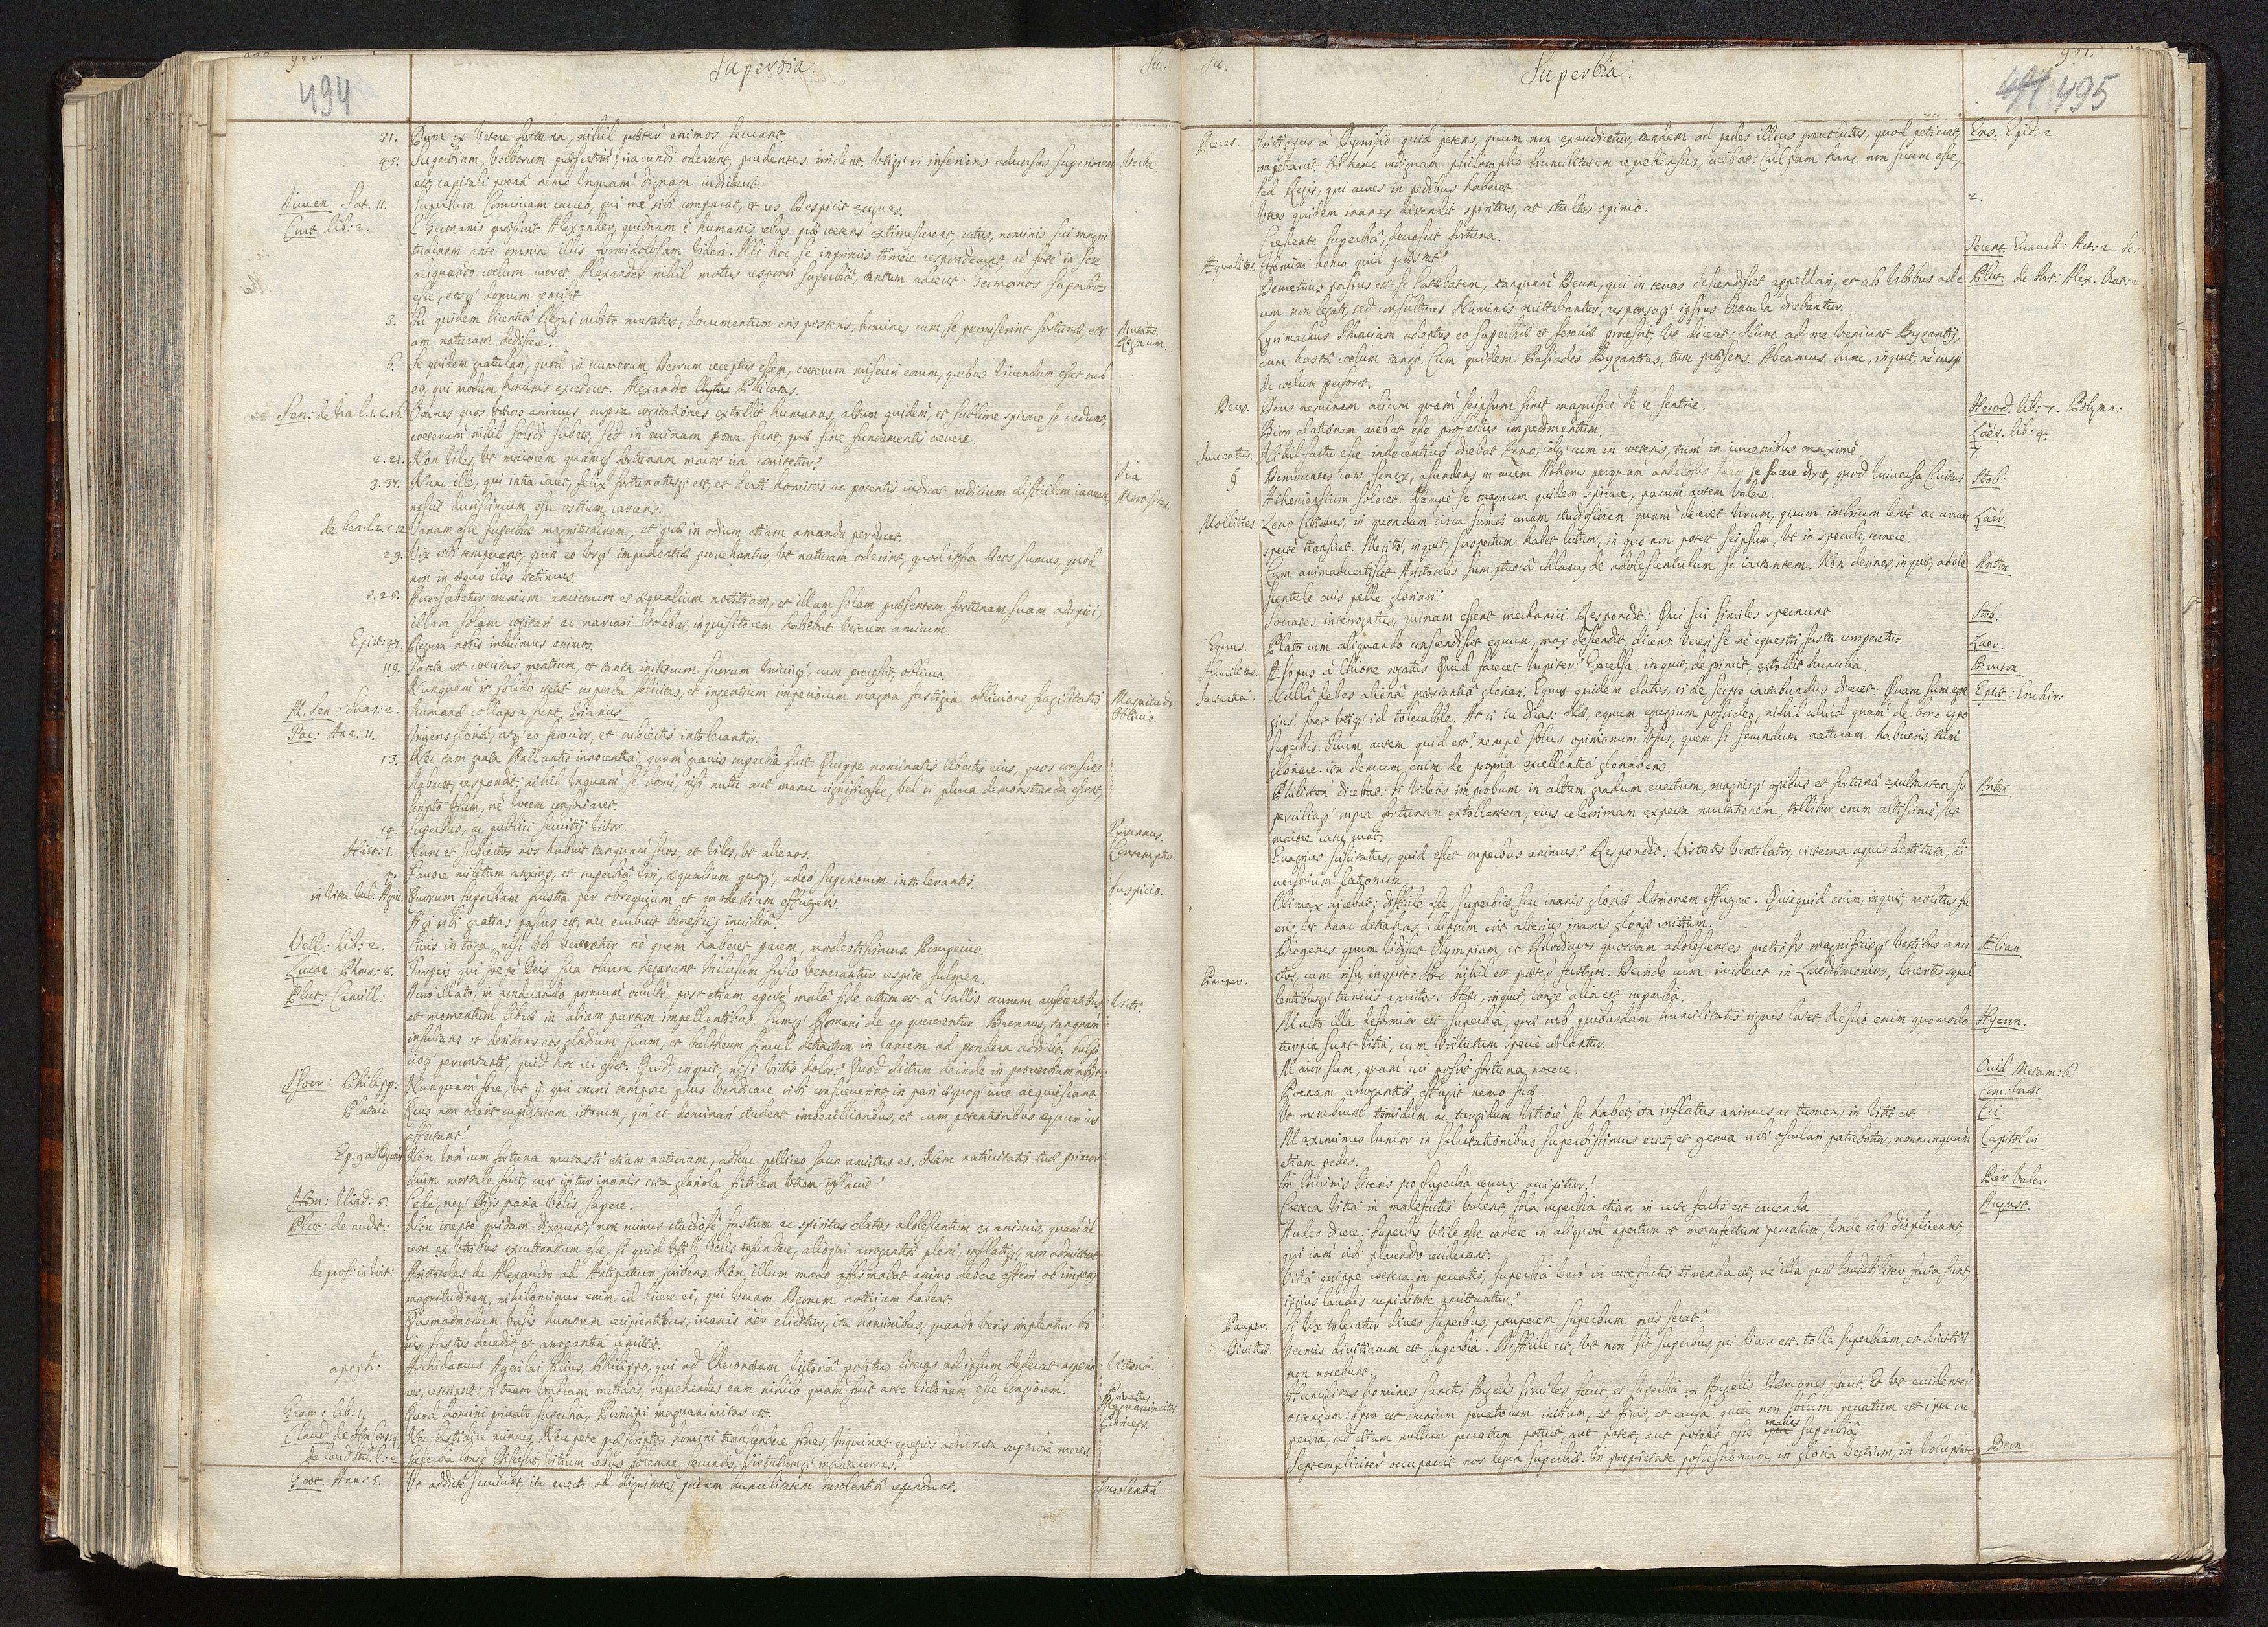 494
Superbia.
Su.
21. Dum ex vetere fortuna, nihil præter animos servant.
45. Superbiam, verborum præsertim, iracundi oderunt, prudentes irrident, utique si inferioris adversus superiorem Verba.
est, capitali poenâ nemo unquam dignam iudicavit.
Iuven. Sat: 11. Superbum convivam caveo, qui me sibi comparat, et res Despicit exiguas.
Curt. lib: 2. E Germanis quæsivit Alexander, quidnam è humanis rebus præ ceteris extimescerent, ratus, nominis sui magni
tudinem ante omnia illis formidolosam videri. Illi hoc se inprimis timere responderunt, ne forte in sese
aliquando coelum rueret, Alexander nihil motus responsi superbiâ, tantum adiecit: Germanos superbos
esse, eosque domum remisit.
3. Tu quidem licentiâ Regni subito mutatus, documentum eris posteris, homines cum se permiserint fortunæ, eti
am naturam dediscere. Mutatio. Regnum.
6. Se quidem gratulari, quod in numerum Deorum receptus esset, ceterum misereri eorum, quibus vivendum esset sub
eo, qui modum hominis excederet. Alexandro Philotas.
Sen: de Ira l.1.c.16. Omnes quos vecors animus supra cogitationes extollit humanas, altum quiddam, et sublime spirare se credunt,
ceterum nihil solidi subest, sed in ruinam prona sunt, quæ sine fundamentis crevere.
2. 21. Non vides, ut maiorem quamque fortunam maior ira comitetur?
3. 37. Nunc ille, qui intra iacet, felix fortunatusque est, et beati hominis ac potentis indicat indicium difficilem ianuam, Ira
nescit durissimum esse ostium carceris. Morositas.
de ben: l.2.c.12 Vanam esse superbiæ magnitudinem, et quæ in odium etiam amanda perducat.
29. Vix sibi temperant, quin eo usque impudentiæ provehantur, ut naturam oderint, quod infra Deos sumus, quod
non in æquo illis stetimus.
3. 28. Aversabatur omnium amicorum et æqualium notitiam, et illam solam præsentem fortunam suam adspici,
illam solam cogitari ac narrari volebat, inquisitorem habebat veterem amicum.
Epist: 47. Regum nobis induimus animos.
119. Tanta est cæcitas mentium, et tanta initiorum suorum unicuique, cum processit, oblivio.
Nunquam in solido stetit superba felicitas, et ingentium imperiorum magna fastigia oblivione fragilitatis Magnitudo
M. Sen: Suas: 2. humanæ collapsa sunt. Triarius Oblivio.
Tac: Ann: 11. Ingens gloriâ, atque eo ferocior, et subiectis intolerantior.
13. Nec tam grata Pallantis innocentia, quam gravis superbia fuit. Quippe nominatis libertis eius, quos conscios
haberet, respondit: nihil unquam se domi, nisi nutu aut manu significasse, vel si plura demonstranda essent,
scripto usum, ne vocem consociaret.
14. Superbus, ac publici servitij victor. Tyrannus.
Hist: 1. Nunc et subiectos nos habuit tanquam suos, et viles, ut alienos. Contemptus.
4. Favore militum anxius, et superbiâ viri, æqualium quoque, adeo superiorum intolerantis. Suspicio.
in vita Iul: Agric. Quorum superbiam frustra per obsequium et modestiam effugeris.
Agi sibi gratias passus est, nec erubuit beneficij invidiâ.
Vell: lib: 2. Civis in toga, nisi ubi vereretur ne quem haberet parem, modestissimus. Pompeius.
Lucan: Phars: 8. Turpes qui sæpè Deis sua thura negarunt Inclusum fusco venerantur cespite fulmen.
Plut: Camill: Auri illato, in ponderando primùm occultè, post etiam apertè malâ fide actum est à Gallis aurum auferentibus, Victi.
et momentum libræ in aliam partem impellentibus. Cumque Romani de eo quererentur. Brennus, tanquam
insultans et deridens eos, gladium suum, et baltheum simul detractum in lancem ad pondera addidit, Sulpi
tioque percontanti, quid hoc rei esset. Quid, inquit, nisi victis dolor? Quod dictum deinde in proverbium abijt.
Isocr: Philipp: Nunquam fore, ut ij, qui omni tempore plus vendicare sibi consueverint, in pari æquoque iure acquiescant.
Plataic Quis non oderit cupiditatem istorum, qui et dominari student imbecillioribus, et cum potentioribus æquum ius
affectant?
Ep: 9 ad Tymo Non unà cum fortuna mutasti etiam naturam, adhuc pelliceo sacco amictus es. Nam nativitatis tuæ primor
dium mortale fuit, cur igitur inanis ista gloriola fictilem utrem inflavit?
Hom: Iliad: 5. Cede, neque Dijs paria velis sapere.
Plut: de audit: Non ineptè quidam dixerunt, non minus studiosè fastum ac spiritus elatos adolescentum ex animis, quam aë
rem ex utribus excutiendum esse, si quid utile velis infundere, alioqui arrogantiâ pleni, inflatique, non admittent.
de prof: in virt: Aristoteles de Alexandro ad Antipatrum scribens. Non, illum modo affirmabat animo debere efferri ob imperij
magnitudinem, nihilominus enim id licere ei, qui veram Deorum notitiam habent.
Quemadmodum vasis humorem recipientibus, inanis aër eliditur, ita hominibus, quando veris implentur bo
nis, fastus decedit, et arrogantia remittit.
apoph: Archidamus Agesilai filius, Philippo, qui ad Chæroneam victoriâ potitus literas ad ipsum dederat asperio Victoria.
res, rescripsit: si tuam umbram metiaris, deprehendes eam nihilo quam fuit ante victoriam esse longiorem.
Gram: lib: 1. Quod homini privato superbia, Principi magnanimitas est. Privatus. Magnanimitas Princeps.
Claud de 4 Hon: Neu fastidire minores, Neu pete præscriptos homini transcendere fines, Inquinat egregios adiuncta superbia mores.
de laud Stil: l: 2 Superbia longè Discessit, vitium rebus solemne secundis, Virtutumque ingrata comes.
Grot. Ann: 5. Ut abditè serviunt, ita evecti ad dignitates, priorem humilitatem insolentiâ rependunt. Insolentia.
Su.
Superbia.
931.
495
Preces. Aristippus à Dyonisio quid petens, quum non exaudiretur, tandem ad pedes illius provolutus, quod petierat, Ens. Epist: 2.
impetravit. Ob hanc indignam philosopho humilitatem reprehensus, aiebat: Culpam hanc non suam esse,
sed Regis, qui aures in pedibus haberet.
Utres quidem inanes distendit spiritus, at stultos opinio. 2.
Crescente superbiâ, decrescit fortuna.
Æqualitas. Homini homo quid præstat? Terent. Eunuch: Act: 2. Sc:
Demetrius passus est se Catæbatem, tanquam Deum, qui in terras descendisset appellari, et ab urbibus ad e Plut. de fort: Alex. Orat: 2
um non legati, sed consultores Numinis mittebantur, responsaque ipsius oracula dicebantur.
Lysimachus Thraciam adeptus eo superbiæ et ferociæ processit, ut diceret: Nunc ad me veniunt Byzantij,
cum hastâ coelum tango. Cum quidem Pasiades Byzantius, tunc præsens. Abeamus hinc, inquit, ne cuspi
de coelum perforet.
Deus. Deus neminem alium quam seipsum sinit magnificè de se sentire. Herod. lib: 7. Polymn:
Bion elationem aiebat esse profectus impedimentum. Laër. lib: 4.
Iuventus. Nihil fastu esse indecentius dicebat Zeno, idque cum in ceteris, tum in iuvenibus maximè. 7.
§ Democrates iam senex, ascendens in arcem Athenis perquam anhelosus idem se facere dixit, quod universa Civitas Stob:
Atheniensium soleret. Nempè se magnum quidem spirare, parum autem valere.
Mollities. Zeno Citiæus, in quendam circa formæ curam studiosiorem quam deceret virum, quum imbrium lentè ac circum Laër.
spectè transiret. Meritò, inquit, suspectum habet lutum, in quo non potest seipsum, ut in speculo, cernere.
Cum animadvertisset Aristoteles sumptuosâ chlamyde adolescentulum se iactantem. Non desines, inquit, adole Anton
scentule ovis pelle gloriari?
Socrates interrogatus, quinam essent mechanici. Respondit: Qui sui similes spernunt. Stob.
Equus. Plato cum aliquando conscendisset equum, mox descendit, dicens: Vereri se ne equestri fastu corriperetur. Laer.
Humilitas. Æsopus à Chione rogatus Quid faceret Iupiter? Excelsa, inquit, deprimit, extollit humilia. Bruson
Iactantia. Nullâ debes alienâ præstantiâ gloriari. Equus quidem elatus, si de seipso iactabundus diceret: Quam sum egre Epict: Enchir:
gius! foret utique id tolerabile. At si tu dicas: en, equum egregium possideo, nihil aliud quam de bono equo
superbis. Tuum autem quid est? nempè solus opinionum usus, quem si secundum naturam habueris, tum
gloriare. ita demum enim de propria excellentiâ gloriaberis.
Philiston dicebat: Si videris improbum in altum gradum evectum, magnisque opibus et fortunâ exultantem su Anton
perciliaque supra fortunam extollentem, eius celerrimam expecta mutationem, tollitur enim altissimè, ut
maiore casu ruat.
Evagrius suscitatus, quid esset superbus animus? Respondit: Virtutis ventilator, cisterna aquis destituta, di
versorium latronum.
Climax dicebat: difficile esse, superbiæ, seu inanis gloriæ dæmonem effugere. Quicquid enim, inquit, molitus fu
eris ut hanc detrahas, id ipsum erit alterius inanis gloriæ initium.
Diogenes quum vidisset Olympiam, et Rhodios quosdam adolescentes pretiosis magnificisque vestibus ami Ælian
ctos, cum risu, inquit: Hoc nihil est præter fastum. Deinde cum incideret in Lacedæmonios, lacertis squal
Pauper. lentibusque tunicis amictos: Hæc, inquit, longè alia est superbia.
Multò illa deformior est superbia, quæ sub quibusdam humilitatis signis latet. Nescio enim quomodo Hyeron.
turpia sunt vitia, cum virtutum specie celantur.
Maior sum, quàm cui possit fortuna nocere. Ovid Metam: 6.
Poenam arrogantiæ effugit nemo suæ.
Ut membrum tumidum ac turgidum vitiosè se habet, ita inflatus animus ac tumens in vitio est. Cic.
Maximinus Iunior in salutationibus superbissimus erat, et genua sibi osculari patiebatur, nonnunquam Capitolin
etiam pedes.
In Divinis literis pro superbia cervix accipitur. Pier Valer
Cetera vitia in malefactis valent, sola superbia etiam in recte factis est cavenda. August.
Audeo dicere: superbis utile esse cadere in aliquod apertum et manifestum peccatum, unde sibi displiceant,
qui iam sibi placendo ceciderant.
Vitia quippe cetera in peccatis, superbia verò in recte factis timenda est, ne illa quæ laudabiliter facta sunt,
ipsius laudis cupiditate amittantur.
Pauper. Si vix toleratur dives superbus, pauperem superbum quis ferat?
Divitiæ. Vermis divitiarum est superbia. Difficile est, ut non sit superbus, qui dives est. tolle superbiam, et divitiæ
non nocebunt.
Humilitas homines sanctis Angelis similes facit, et superbia ex Angelis Dæmones facit. Et ut evidenter
ostendam: Ipsa est omnium peccatorum initium, et finis, et causa. quia non solum peccatum est ipsa su
perbia, sed etiam nullum peccatum potuit, aut potest, aut poterit esse sine superbiâ.
Septempliciter occupavit nos lepra superbiæ. In proprietate possessionum, in gloria vestium, in voluptate Bern